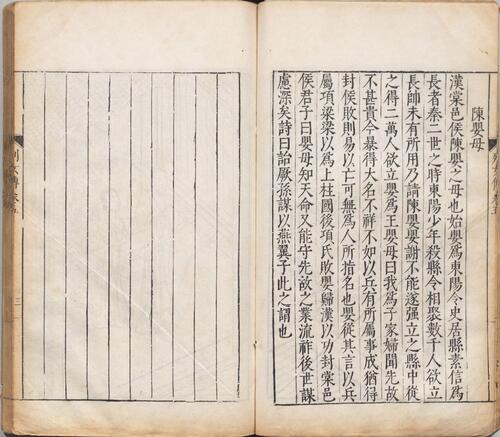 陳嬰母
漢棠邑侯陳嬰之母也始嬰爲東陽令史居縣素信爲
長者秦二世之時東陽少年殺縣令相聚數千人欲立
長帥未有所用乃請陳嬰嬰謝不能遂强立之縣中從
之得二萬人欲立嬰爲王嬰母曰我爲子家婦聞先故
不甚貴今暴得大名不祥不如以兵有所屬事成猶得
封侯敗則易以亡可無爲人所指名也嬰從其言以兵
屬項梁梁以爲上柱國後項氏敗嬰歸漢以功封棠邑
侯君子曰嬰母知天命又能守先故之業流祚後世謀
慮深矣詩曰詒厥孫謀以燕翼子此之謂也
列女傳卷五
三